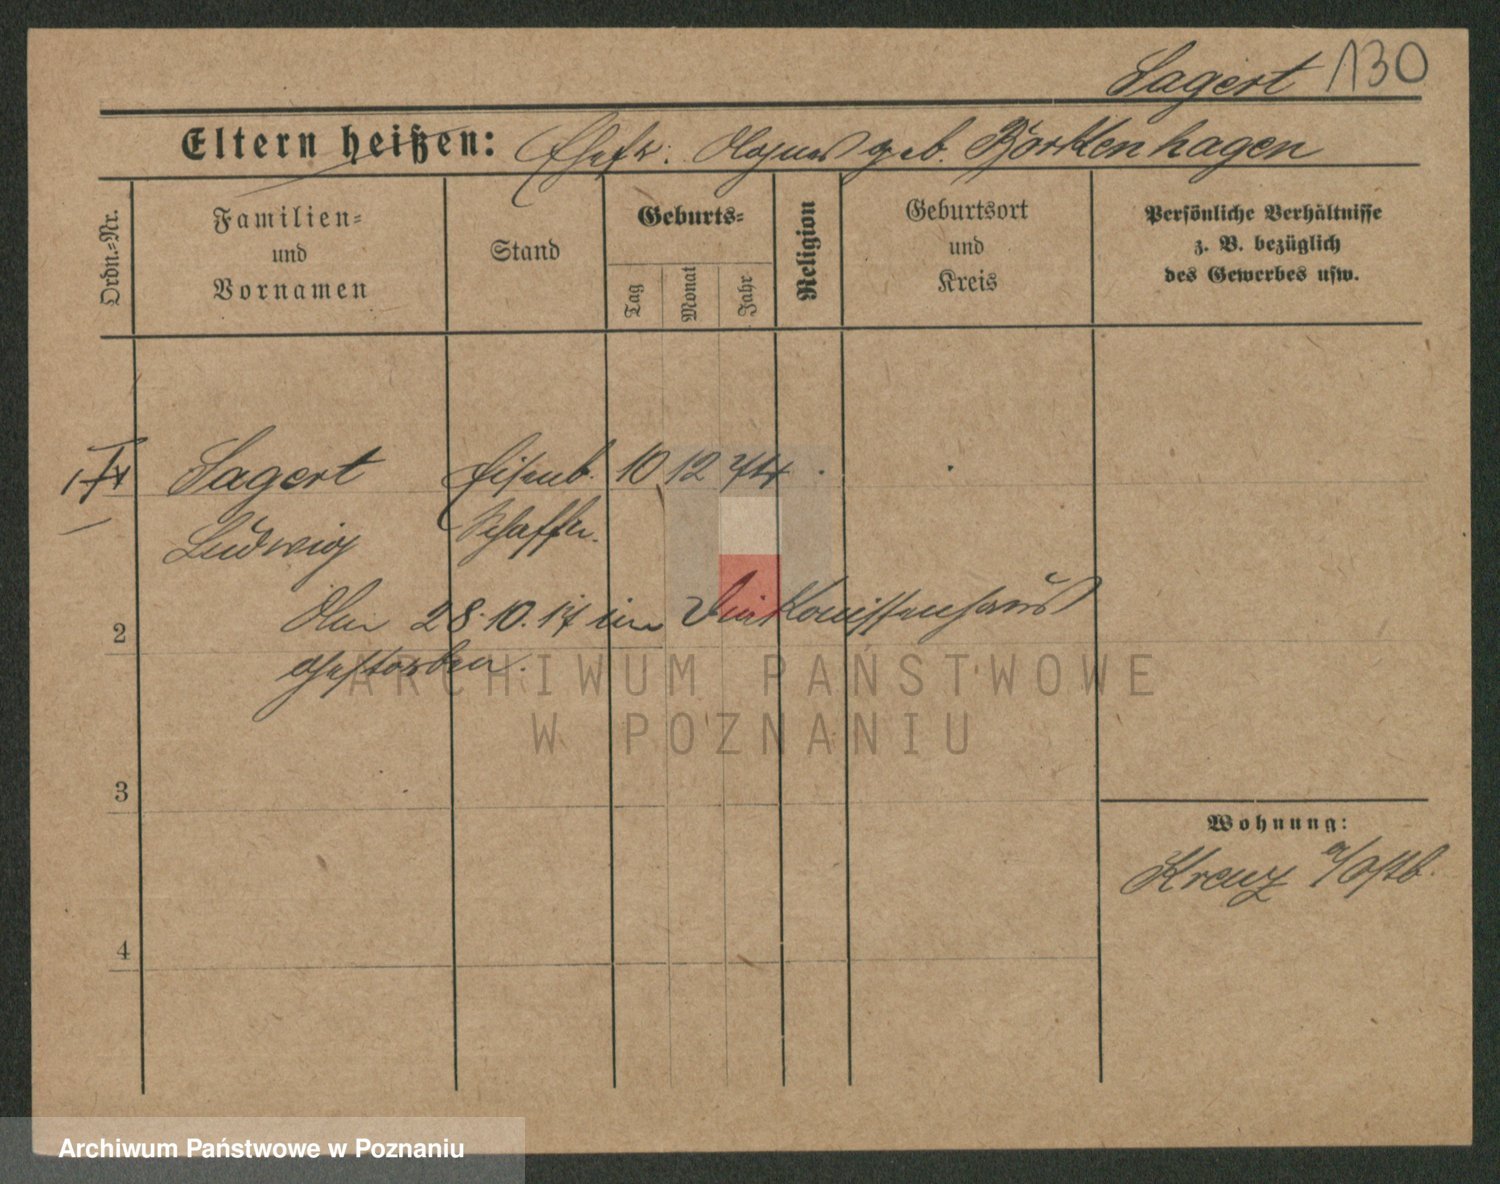 Sagert 130
Eltern heißen: Ehefr. Agnes geb. Borktenhagen
Ordn.=Nr.
Familien=
und
Vornamen
Stand
Geburts=
Tag
Monat
Jahr
Religion
Geburtsort
und
Kreis
Persönliche Verhältnisse
z. B. bezüglich
des Gewerbes usw.
Sagert Eisenb. 10 12 74
Ludwig Schaffn.
Am 28.10.17 im Diakonissenhaus
2
gestorben.
ARCHIWUM PAŃSTWOWE
W POZNANIU
3
Wohnung:
Kreuz a/Ostb.
4
Archiwum Państwowe w Poznaniu